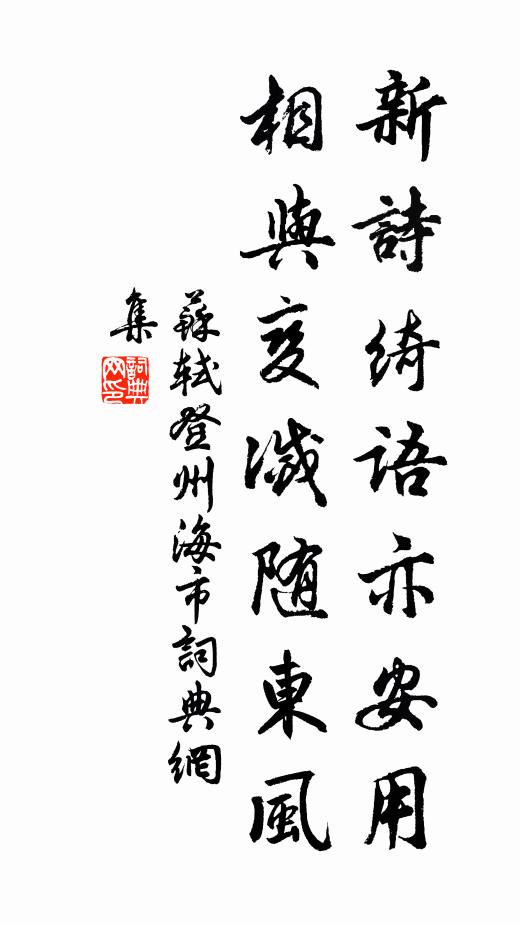 新詩綺語亦安用
相與变滅随東風
蘇軾登州海市詞典網
集
詞典
网印